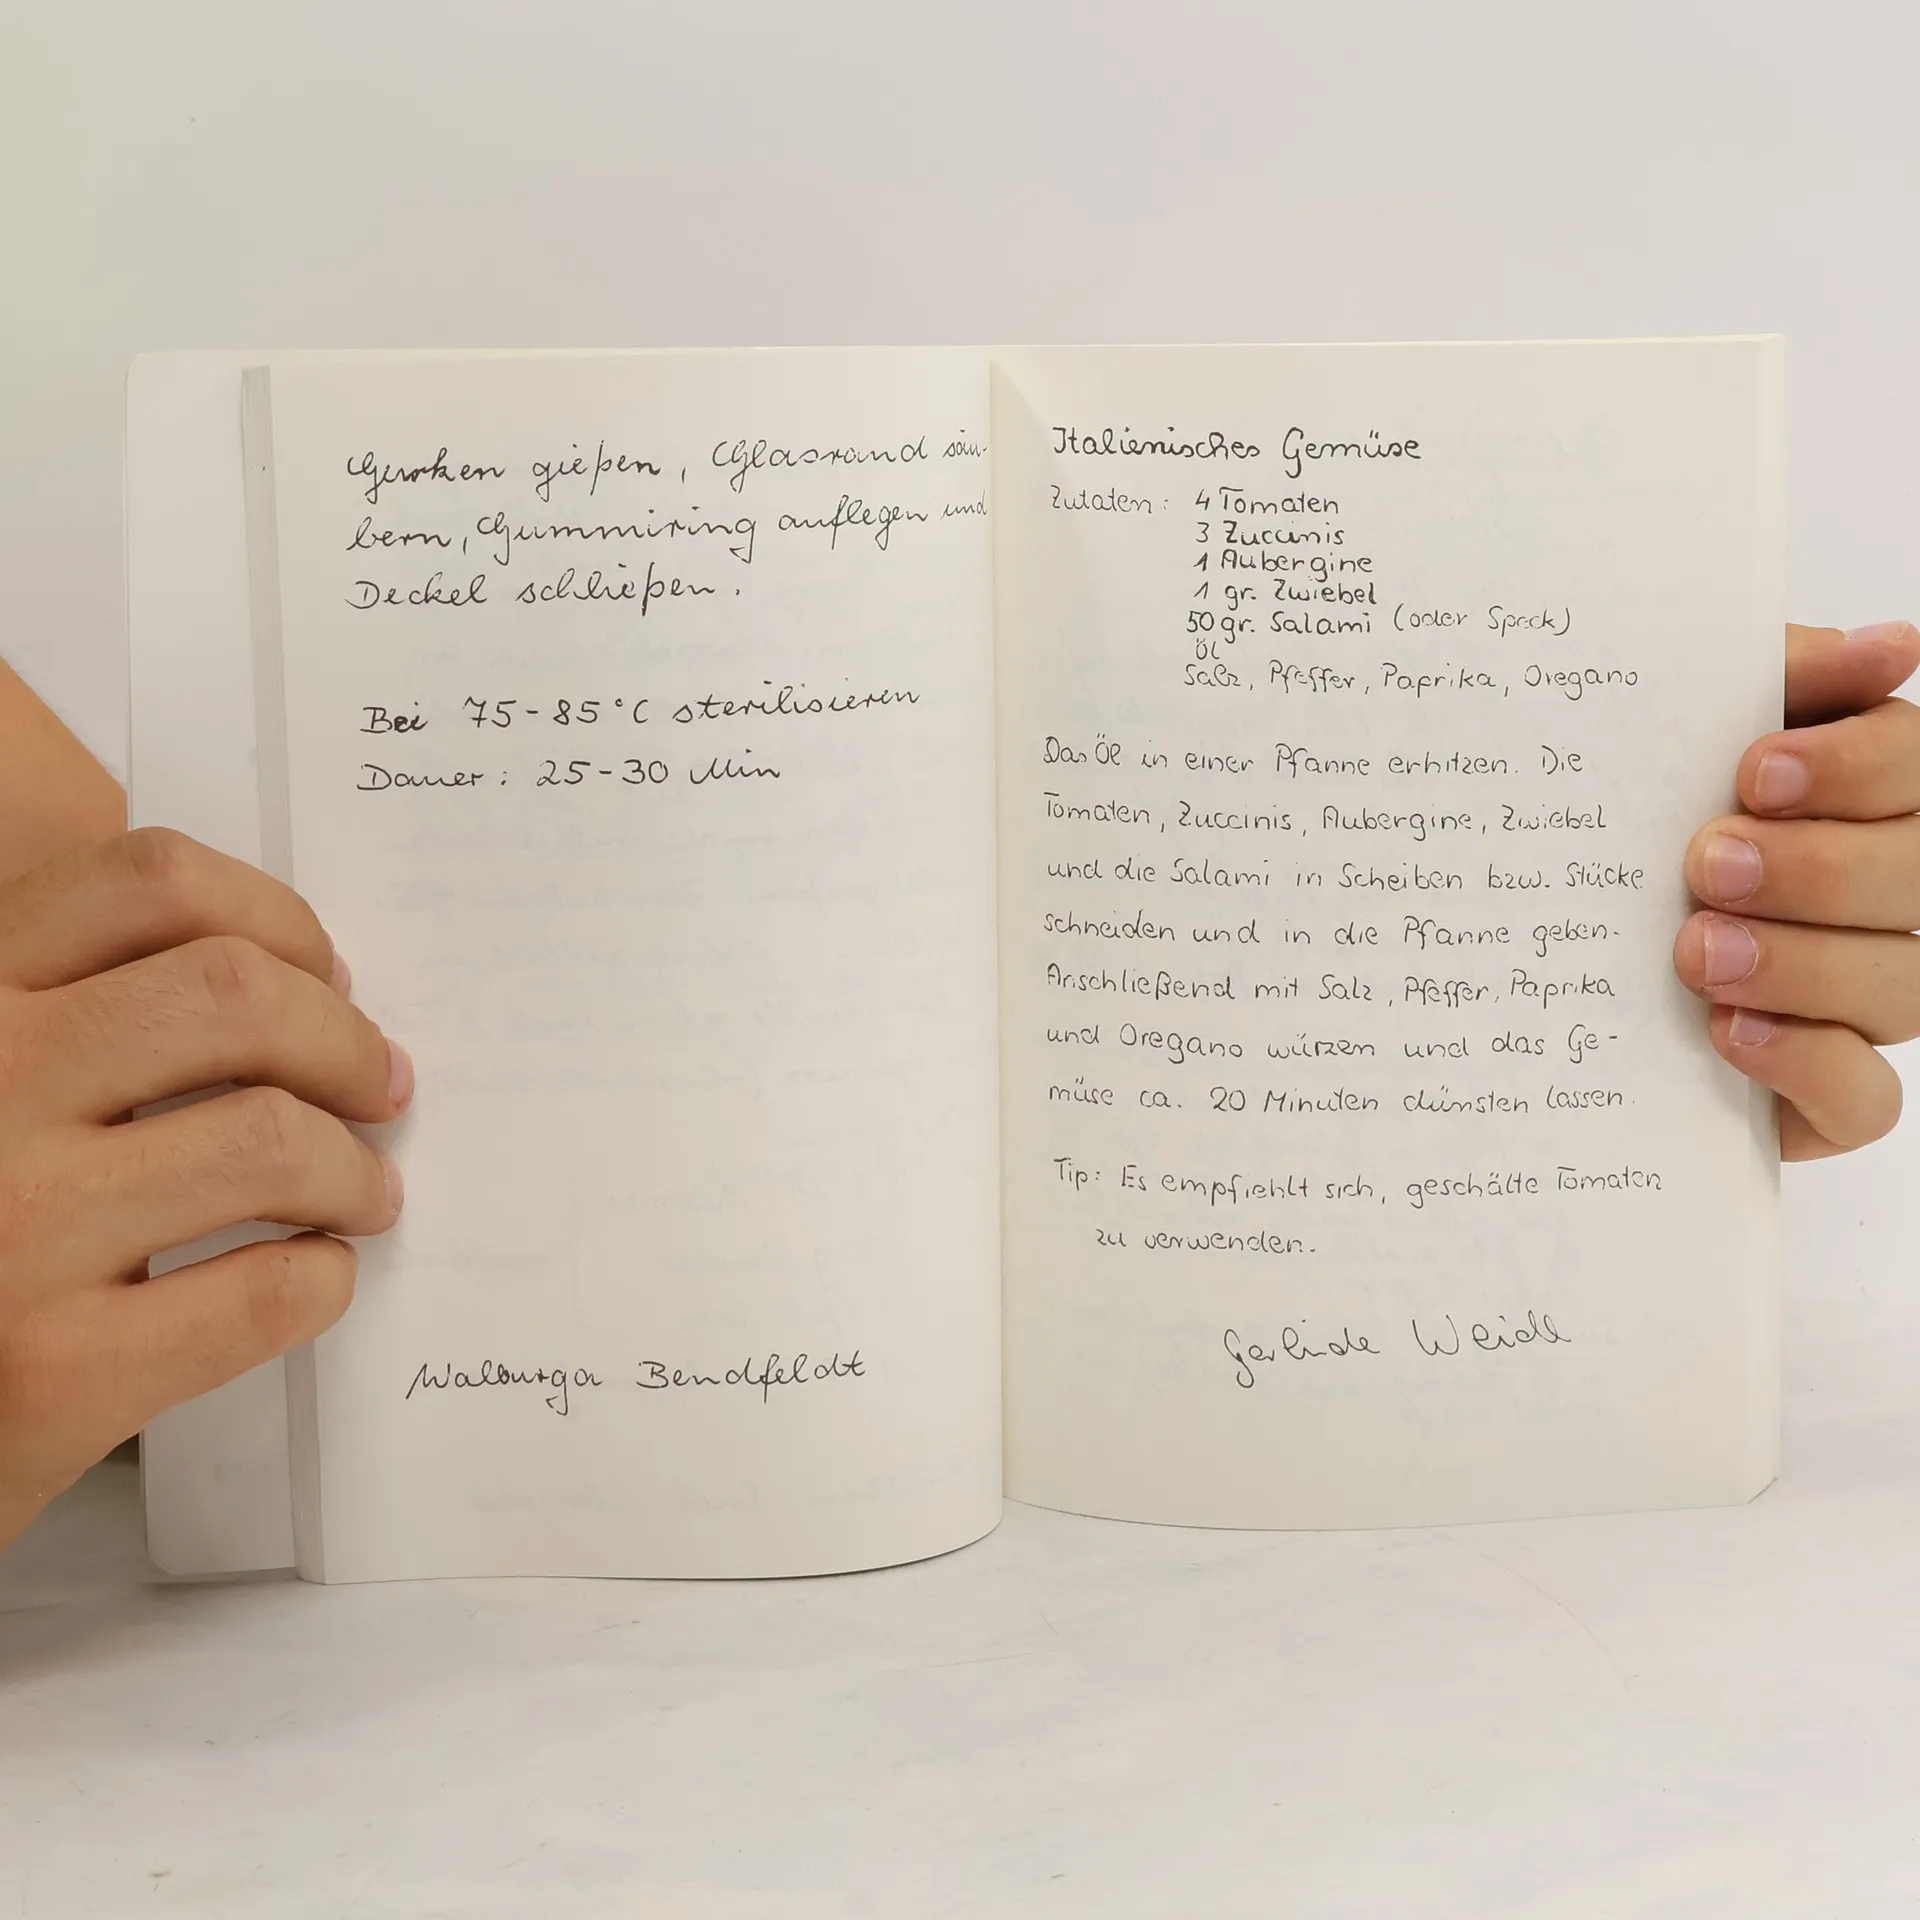 Gurken gießen, Glasrand säu-
bern, Gummiring auflegen und
Deckel schließen.
Bei 75-85°C sterilisieren
Dauer: 25-30 Min
Walburga Bendfeldt
Italienisches Gemüse
Zutaten: 4 Tomaten
3 Zuccinis
1 Aubergine
1 gr. Zwiebel
50 gr. Salami (oder Speck)
Öl
Salz, Pfeffer, Paprika, Oregano
Das Öl in einer Pfanne erhitzen. Die
Tomaten, Zuccinis, Aubergine, Zwiebel
und die Salami in Scheiben bzw. Stücke
schneiden und in die Pfanne geben.
Anschließend mit Salz, Pfeffer, Paprika
und Oregano würzen und das Ge-
müse ca. 20 Minuten dünsten lassen.
Tip: Es empfiehlt sich, geschälte Tomaten
zu verwenden.
Gerlinde Weidl